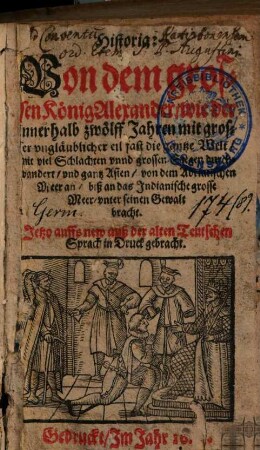 Conventus Ratisbonensis
ord. Erem. S. P. Augustini
Historia:
Von dem gros-
sen König Alexander / wie der
innerhalb zwölff Jahren mit gros-
ser vngläublicher eil fast die gantze Welt
mit viel Schlachten vnnd grossen Siegen durch-
wandert / vnd gantz Asien / von dem Adrianischen
Meer an / biß an das Indianische grosse
Meer / vnter seinen Gewalt
bracht.
Germ.
174 (8).
Jetzo auffs new auß der alten Teutschen
Sprach in Druck gebracht.
Gedruckt / Im Jahr